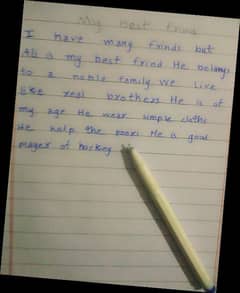 My Best Frind
I have many frinds but
Ali is my best frind He belongs
to a noble family We Live
Like real brothers He is of
my age He wear simple cloths
He help the poors He is good
player of hocking